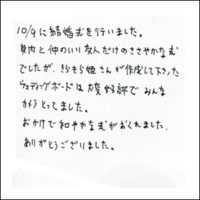 10/9に結婚式を行いました。
身内と仲のいい友人だけのささやかな式
でしたが、きらもら姫さんが作成して下さった
ウェディングボードは大変好評で みんな
カメラとってました。
おかげで和やかな式がおくれました。
ありがとうございました。